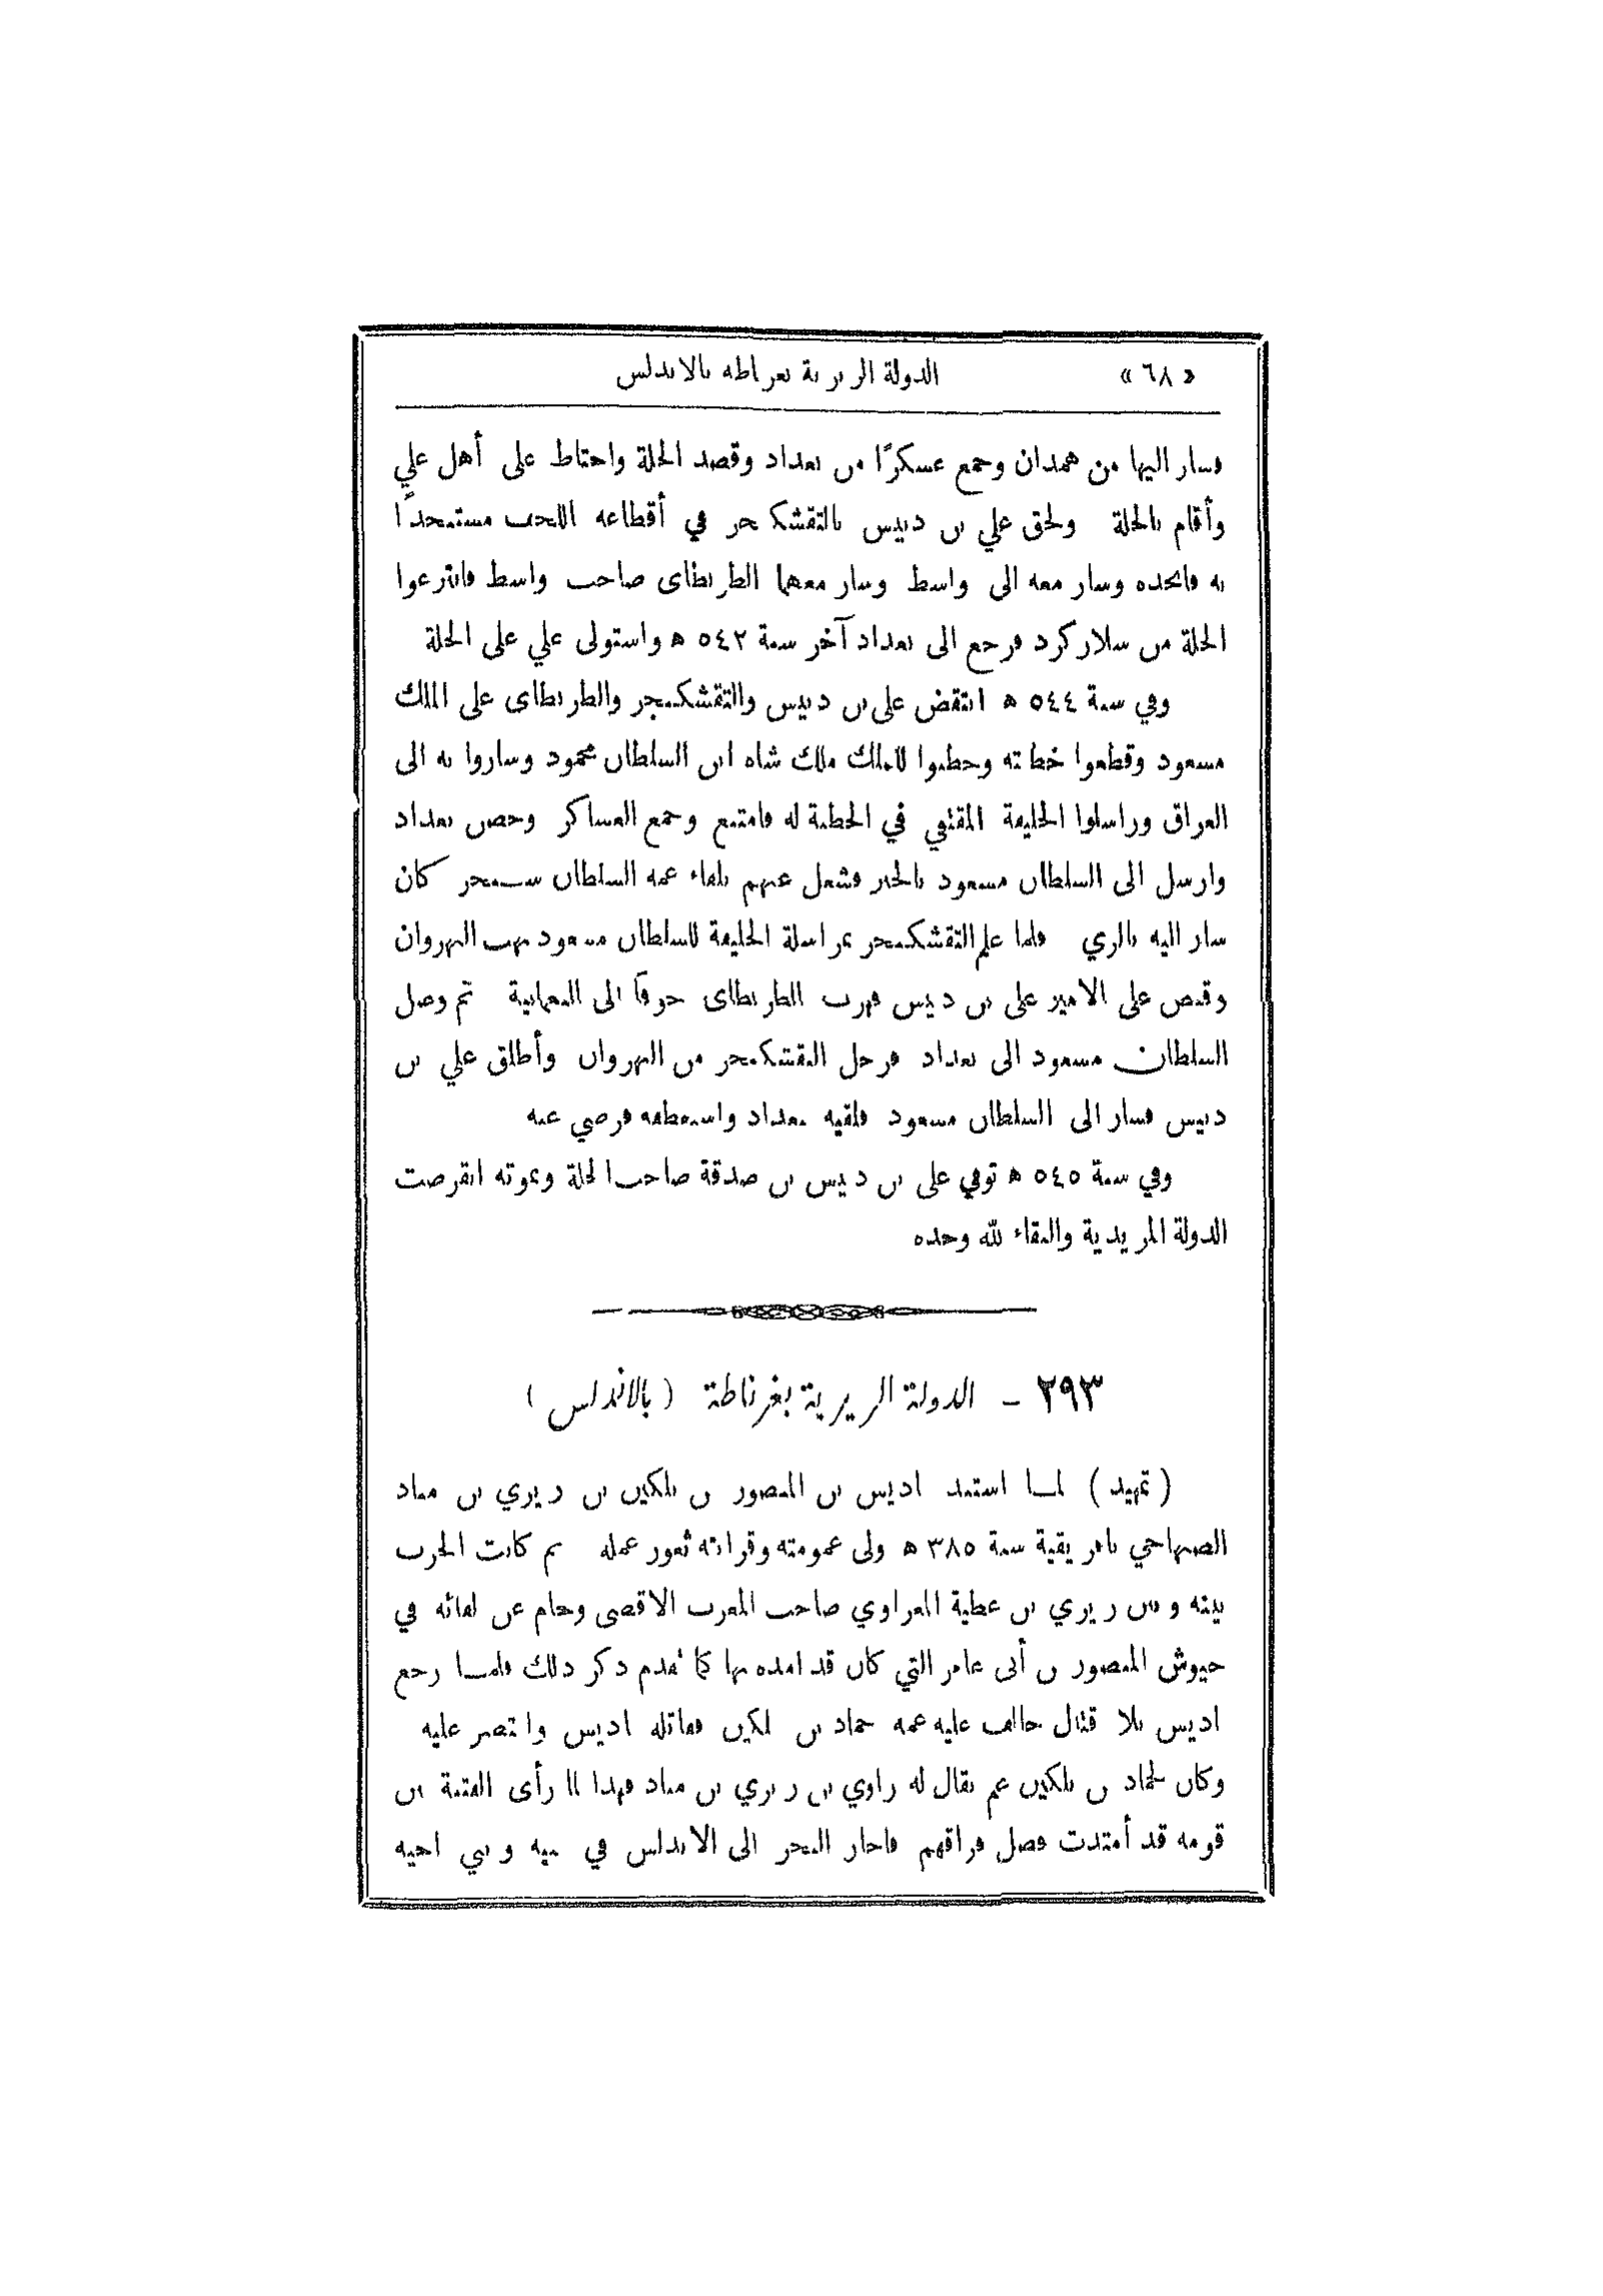 « ٦٨ » الدولة الزيرية بغراطه بالاندلس
فسار اليها من همدان وجمع عسكرًا من بغداد وقصد الحلة واحتاط على أهل علي
وأقام بالحلة ولحق علي بن دبيس بالتقشكنجر في أقطاعه اللحف مستنجدًا
به فانجده وسار معه الى واسط وسار معهما الطرنطاى صاحب واسط فانتزعوا
الحلة من سلاركرد فرجع الى بغداد آخر سنة ٥٤٢ ه واستولى علي على الحلة
وفي سنة ٥٤٤ ه انتقض على بن دبيس والتقشكنجر والطرنطاى على الملك
مسعود وقطعوا خطبته وخطبوا للملك ملك شاه ابن السلطان محمود وساروا به الى
العراق وراسلوا الخليفة المقتفي في الخطبة له فامتنع وجمع العساكر وحصن بغداد
وارسل الى السلطان مسعود بالخبر فشغل عنهم بلقاء عمه السلطان سنجر كان
سار اليه بالري فلما علم التقشكنجر بمراسلة الخليفة للسلطان مسعود نهب النهروان
وقبض على الامير على بن دبيس فهرب الطرنطاى خوفًا الى النعمانية ثم وصل
السلطان مسعود الى بغداد فرحل التقشكنجر من النهروان وأطلق علي بن
دبيس فسار الى السلطان مسعود فلقيه ببغداد واستعطفه فرضي عنه
وفي سنة ٥٤٥ ه توفي على بن دبيس بن صدقة صاحب الحلة وبموته انقرضت
الدولة المزيدية والبقاء لله وحده
٢٩٣ - الدولة الزيرية بغرناطة (بالاندلس)
(تمهيد) لما استبد باديس بن المنصور بن بلكين بن زيري بن مناد
الصنهاجي بافريقية سنة ٣٨٥ ه ولى عمومته وقرابته ثغور عمله ثم كانت الحرب
بينه وبين زيري بن عطية المغراوي صاحب المغرب الاقصى وخام عن لقائه في
جيوش المنصور بن أبى عامر التي كان قد امده بها كما تقدم ذكر ذلك فلما رجع
باديس بلا قتال خالف عليه عمه حماد بن بلكين فقاتله باديس وانتصر عليه
وكان لحماد بن بلكين عم يقال له زاوي بن زيري بن مناد فهذا لما رأى الفتنة بين
قومه قد أمتدت فضل فراقهم فاجاز البحر الى الاندلس في بنيه وبني اخيه